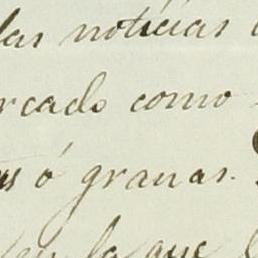 las noticias
rcado como
ó granas.
en la que